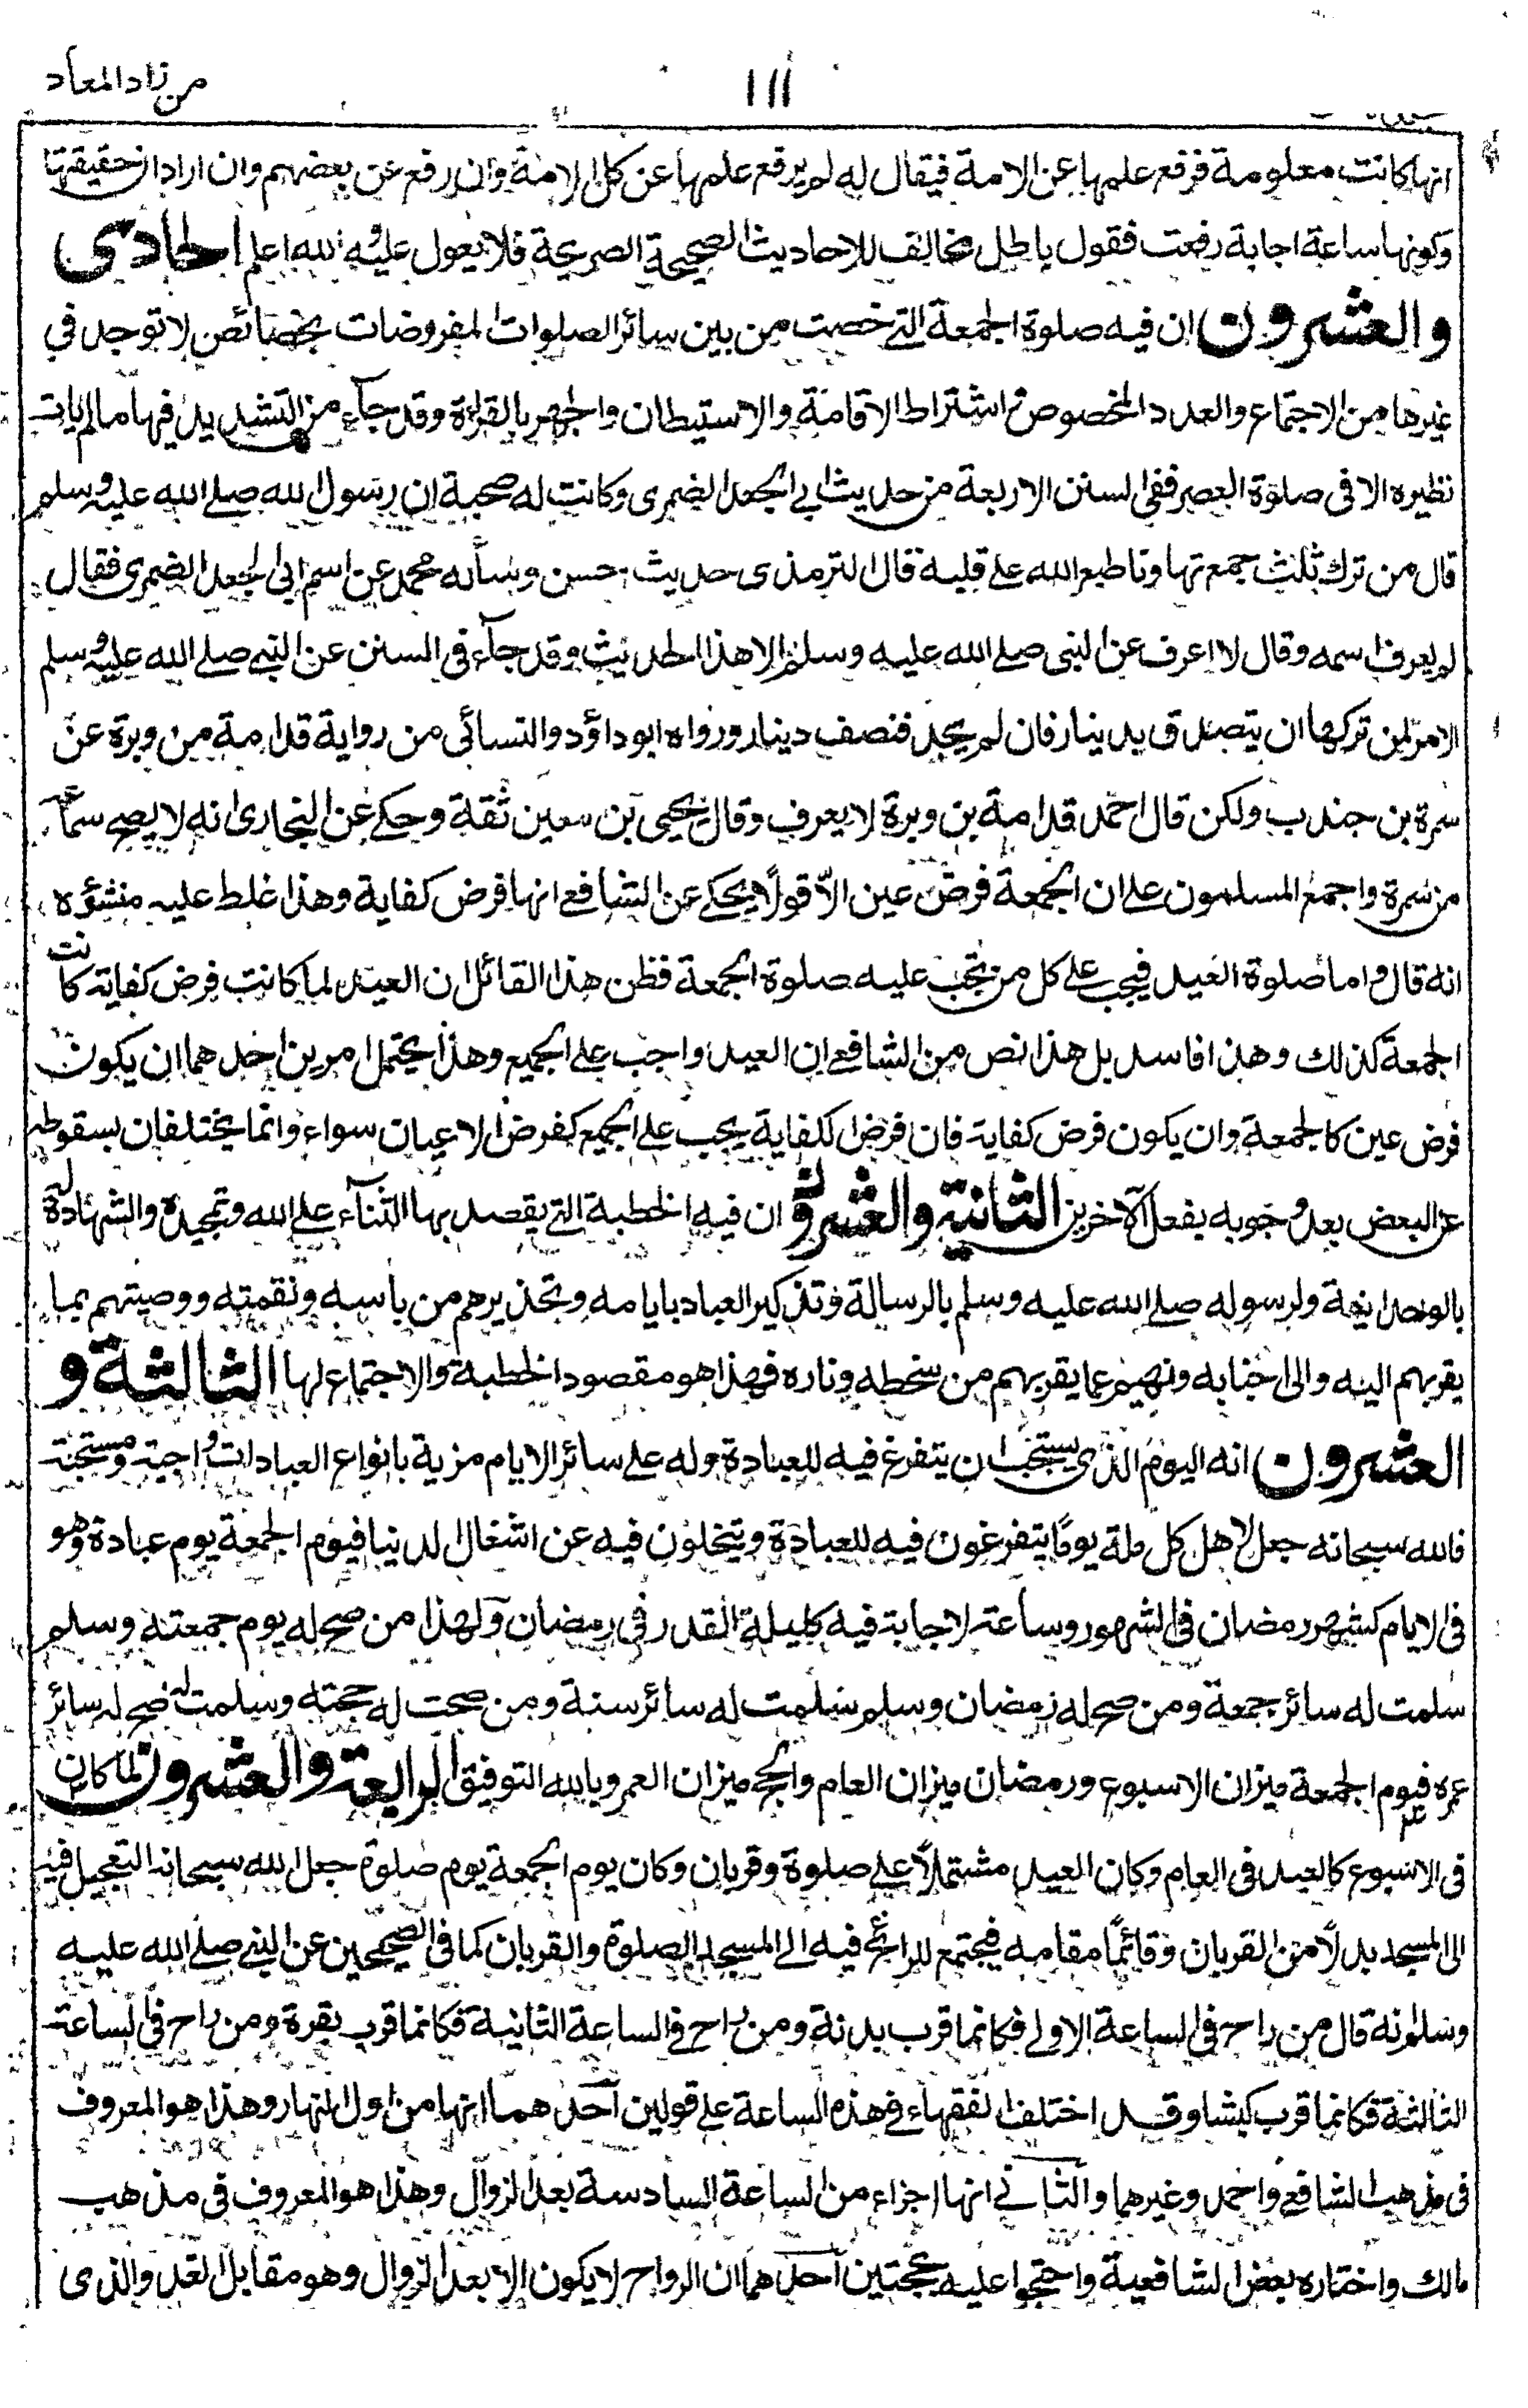 من زاد المعاد
١١١
انها كانت معلومة فرفع علمها عن الامة فيقال له لم يرفع علمها عن كل الامة وان رفع عن بعضهم وان اراد ان حقيقتها
وكونها ساعة اجابة رفعت فقول باطل مخالف للاحاديث الصحيحة الصريحة فلا يعول عليه والله اعلم الحادى
والعشرون ان فيه صلوة الجمعة التى خصت من بين سائر الصلوات المفروضات بخصائص لا توجد فى
غيرها من الاجتماع والعدد المخصوص واشتراط الاقامة والاستيطان والجهر بالقراة وقد جاء من التشديد فيها ما لم يات
نظيره الا فى صلوة العصر ففى السنن الاربعة من حديث ابى الجعد الضمرى وكانت له صحبة ان رسول الله صلى الله عليه وسلم
قال من ترك ثلث جمع تهاونا طبع الله على قلبه قال الترمذى حديث حسن وسألت محمد عن اسم ابى الجعد الضمرى فقال
لم يعرف اسمه وقال لا اعرف عن النبى صلى الله عليه وسلم الا هذا الحديث وقد جآء فى السنن عن النبى صلى الله عليه وسلم
الامر لمن تركها ان يتصدق بدينار فان لم يجد فنصف دينار ورواه ابو داؤد والنسائى من رواية قدامة من وبرة عن
سمرة بن جندب ولكن قال احمد قدامة بن وبرة لا يعرف وقال يحيى بن معين ثقة وحكى عن البخارى انه لا يصح سماعه
من سمرة واجمع المسلمون على ان الجمعة فرض عين الا قولا يحكى عن الشافعى انها فرض كفاية وهذا غلط عليه منشؤه
انه قال واما صلوة العيد فيجب على كل من تجب عليه صلوة الجمعة فظن هذا القائل ان العيد لما كانت فرض كفاية كانت
الجمعة كذلك وهذا فاسد بل هذا نص من الشافعى ان العيد واجب على الجميع وهذا يحتمل امرين احدهما ان يكون
فرض عين كالجمعة وان يكون فرض كفاية فان فرض الكفاية يجب على الجميع كفرض الاعيان سواء وانما يختلفان بسقوطه
عن البعض بعد وجوبه بفعل الآخرين الثانية والعشرون ان فيه الخطبة التى يقصد بها الثناء على الله وتمجيده والشهادة له
بالوحدانية ولرسوله صلى الله عليه وسلم بالرسالة وتذكير العباد بايامه وتحذيرهم من باسه ونقمته ووصيتهم بما
يقربهم اليه والى جنابه ونهيهم عما يقربهم من سخطه وناره فهذا هو مقصود الخطبة والاجتماع لها الثالثة و
العشرون انه اليوم الذى يستحب ان يتفرغ فيه للعبادة وله على سائر الايام مزية بانواع العبادات واجبة ومستحبة
فالله سبحانه جعل لاهل كل ملة يوما يتفرغون فيه للعبادة ويتخلون فيه عن اشغال الدنيا فيوم الجمعة يوم عبادة وهو
فى الايام كشهر رمضان فى الشهور وساعة الاجابة فيه كليلة القدر فى رمضان ولهذا من صح له يوم جمعته وسلم
سلمت له سائر جمعة ومن صح له رمضان وسلم سلمت له سائر سنة ومن صحت له حجته وسلمت له صح له سائر
عمره فيوم الجمعة ميزان الاسبوع ورمضان ميزان العام والحج ميزان العمر وبالله التوفيق الرابعة والعشرون لما كان
فى الاسبوع كالعيد فى العام وكان العيد مشتملا على صلوة وقربان وكان يوم الجمعة يوم صلوة جعل الله سبحانه التعجيل فيه
الى المسجد بدلا من القربان وقائما مقامه فيجتمع للرائح فيه الى المسجد الصلوة والقربان كما فى الصحيحين عن النبى صلى الله عليه
وسلم انه قال من راح فى الساعة الاولى فكانما قرب بدنة ومن راح فى الساعة الثانية فكانما قرب بقرة ومن راح فى الساعة
الثالثة فكانما قرب كبشا وقد اختلف الفقهاء فى هذه الساعة على قولين احدهما انها من اول النهار وهذا هو المعروف
فى مذهب الشافعى واحمد وغيرهما والثانى انها اجزاء من الساعة السادسة بعد الزوال وهذا هو المعروف فى مذهب
مالك واختاره بعض الشافعية واحتجوا عليه بحجتين احدهما ان الرواح لا يكون الا بعد الزوال وهو مقابل الغد والذى